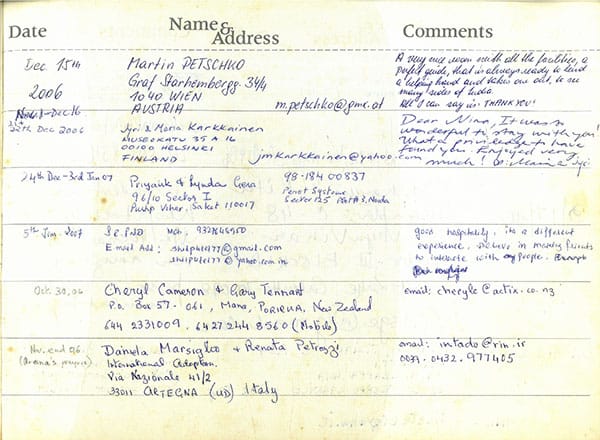 Date Name & Address Comments
Dec 15th
2006
Martin PETSCHKO
Graf Starhembergg. 34/4
1040 WIEN
AUSTRIA m.petschko@gmx.at
A very nice room with all the facilities, a
perfect guide, that is always ready to lend
a helping hand and takes one out, to see
many sides of India.
All I can say is: THANK YOU!
Dec 16
22th Dec 2006
Jyri & Maria Karkkainen
MUSEOKATU 35 A 16
00100 HELSINKI
FINLAND jmkarkkainen@yahoo.com
Dear Nina, It was so
wonderful to stay with you!
What a priviledge to have
found you. Enjoyed very
much!
24th Dec - 3rd Jan 07
Priyank & Lynda Gera
96/10 Sector I
Pushp Vihar, Saket 110017
98-184 00837
Perot Systems
Sector 125 Noida
5th Jan. 2007
Mob. 9322646950
Email Add:
@gmail.com
@yahoo.com.in
good hospitality, its a different
experience. believe in making friends
to interact with people.
Oct 30.06
Cheryl Cameron & Gary Tennant
P.O. Box 57-061, Mana, PORIRUA, New Zealand
644 2331009. 6427 244 8560 (Mobile)
email: cheryle@actix.co.nz
Nov. end 06.
Daniela Marsiglio & Renata Petrozzi
International Adoption
Via Nazionale 41/2
33011 ARTEGNA (UD) Italy
email: intado@rin.it
0039.0432.977405